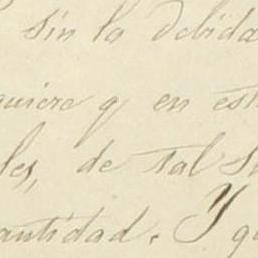 sin la debida
quiere q en est
les, de tal s
antidad. Y q